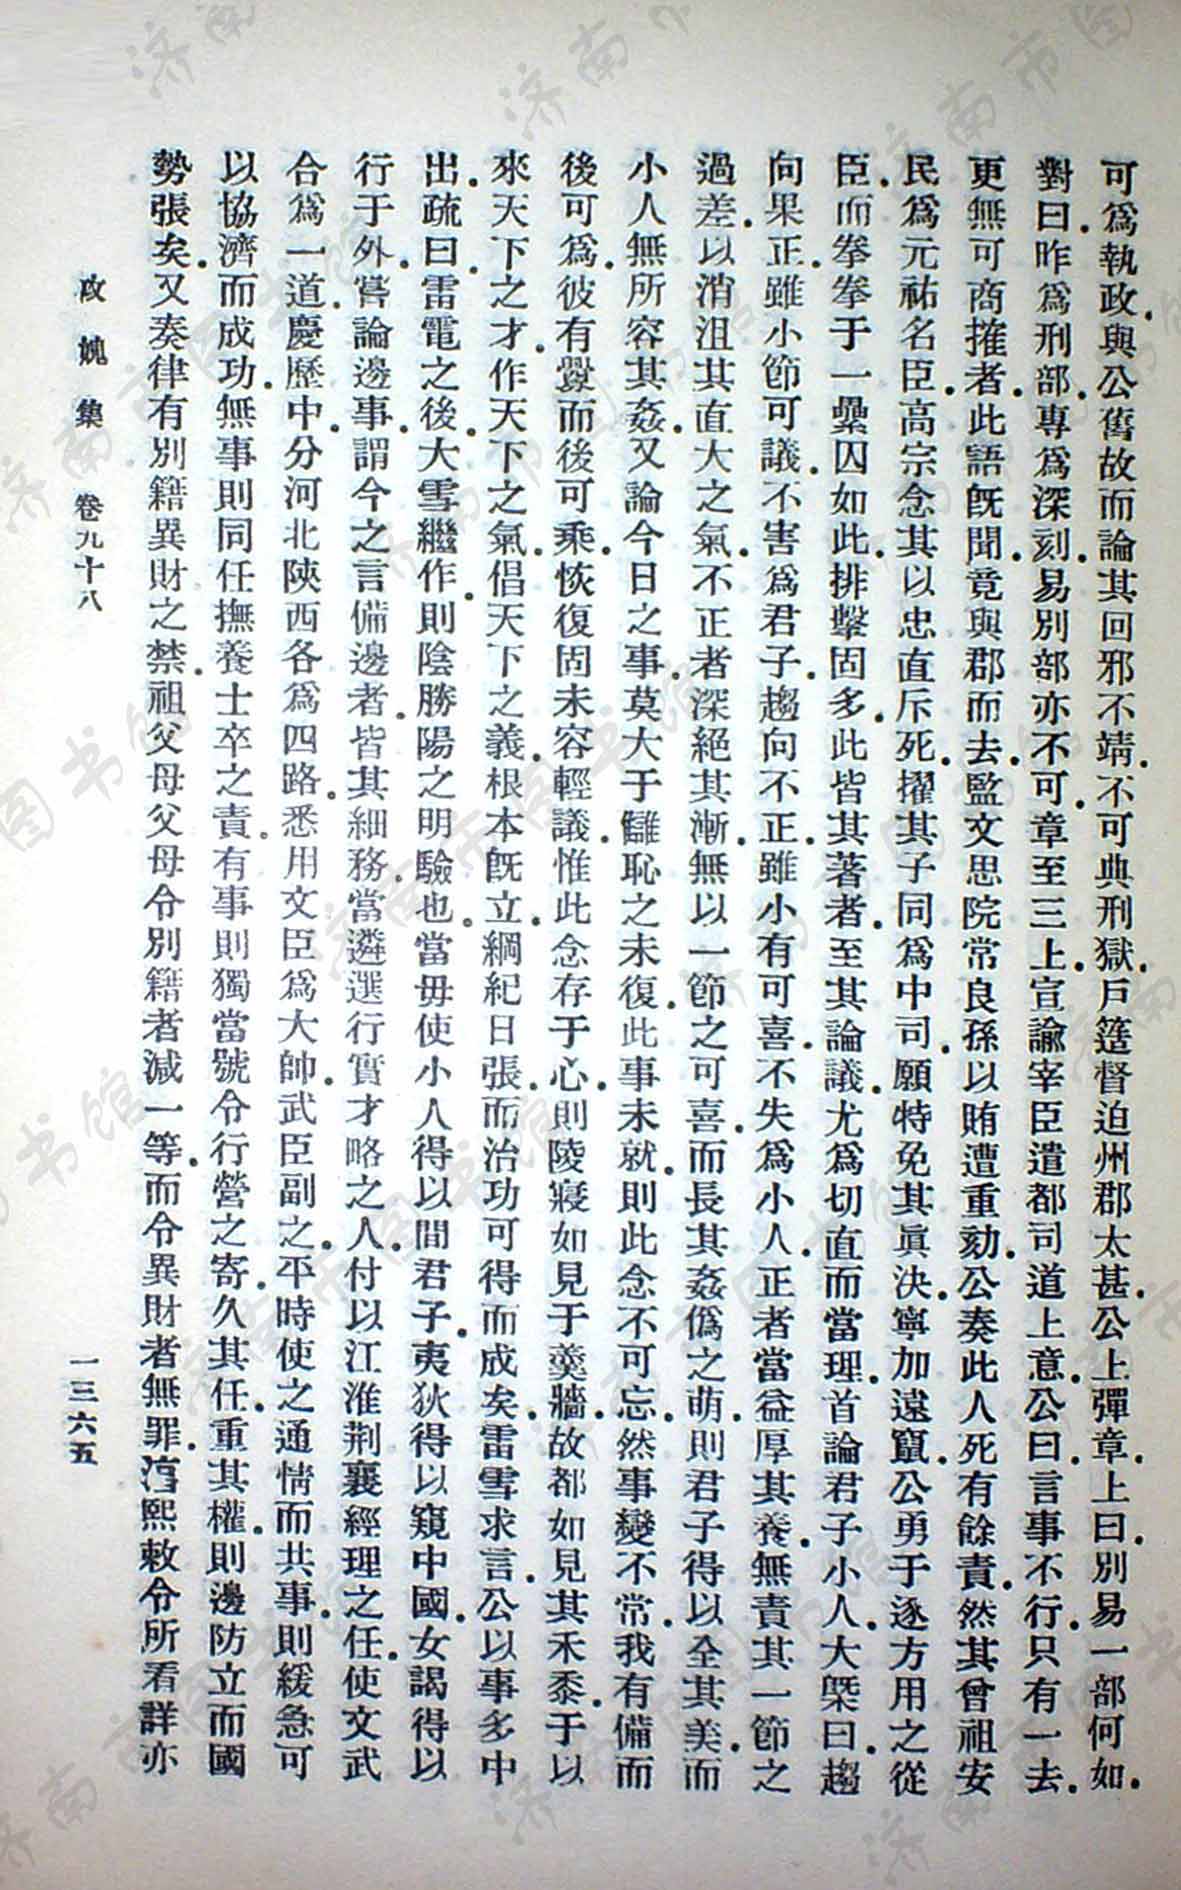 可爲執政與公舊故而論其回邪不靖不可典刑獄戶筵督迫州郡太甚公上彈章上曰別易一部何如
對曰昨爲刑部專爲深刻易別部亦不可章至三上宣諭宰臣遣都司道上意公曰言事不行只有一去
更無可商搉者此語旣聞竟與郡而去監文思院常良孫以賄遭重劾公奏此人死有餘責然其曾祖安
民爲元祐名臣高宗念其以忠直斥死擢其子同爲中司願特免其眞決寧加遠竄公勇于逐方用之從
臣而拳拳于一纍囚如此排擊固多此皆其著者至其論議尤爲切直而當理首論君子小人大槩曰趨
向果正雖小節可議不害爲君子趨向不正雖小有可喜不失爲小人正者當益厚其養無責其一節之
過差以消沮其直大之氣不正者深絕其漸無以一節之可喜而長其姦僞之萌則君子得以全其美而
小人無所容其姦又論今日之事莫大于讎恥之未復此事未就則此念不可忘然事變不常我有備而
後可爲彼有釁而後可乘恢復固未容輕議惟此念存于心則陵寢如見于羹牆故都如見其禾黍于以
來天下之才作天下之氣倡天下之義根本旣立綱紀日張而治功可得而成矣雷雪求言公以事多中
出疏曰雷電之後大雪繼作則陰勝陽之明驗也當毋使小人得以間君子夷狄得以窺中國女謁得以
行于外嘗論邊事謂今之言備邊者皆其細務當遴選行實才略之人付以江淮荆襄經理之任使文武
合爲一道慶曆中分河北陝西各爲四路悉用文臣爲大帥武臣副之平時使之通情而共事則緩急可
以協濟而成功無事則同任撫養士卒之責有事則獨當號令行營之寄久其任重其權則邊防立而國
勢張矣又奏律有別籍異財之禁祖父母父母令別籍者減一等而令異財者無罪淳熙敕令所看詳亦
攻媿集 卷九十八
一三六五
济南市图书馆